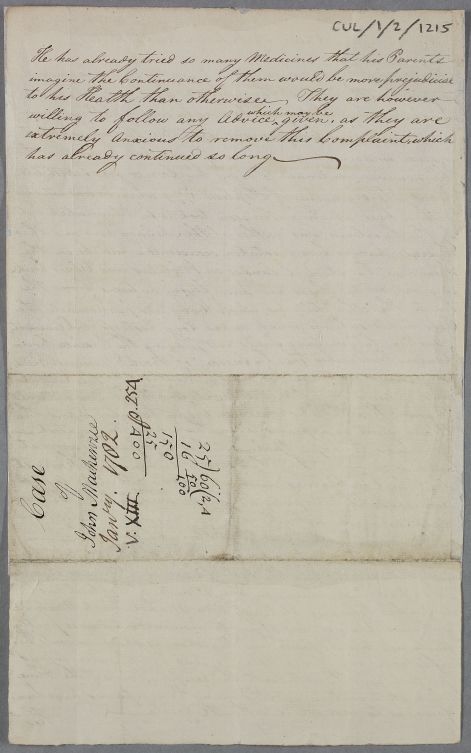 CUL/1/2/1215
He has already tried so many Medicines that his Parents
imagine the Continuance of them would be more prejudicial
to his Health than otherwise. They are however
willing to follow any Advice which may be given, as they are
extremely Anxious to remove this Complaint, which
has already continued so long
Case
of
John Mackenzie
Janry. 1782.
V. XIII
400
25
150
16